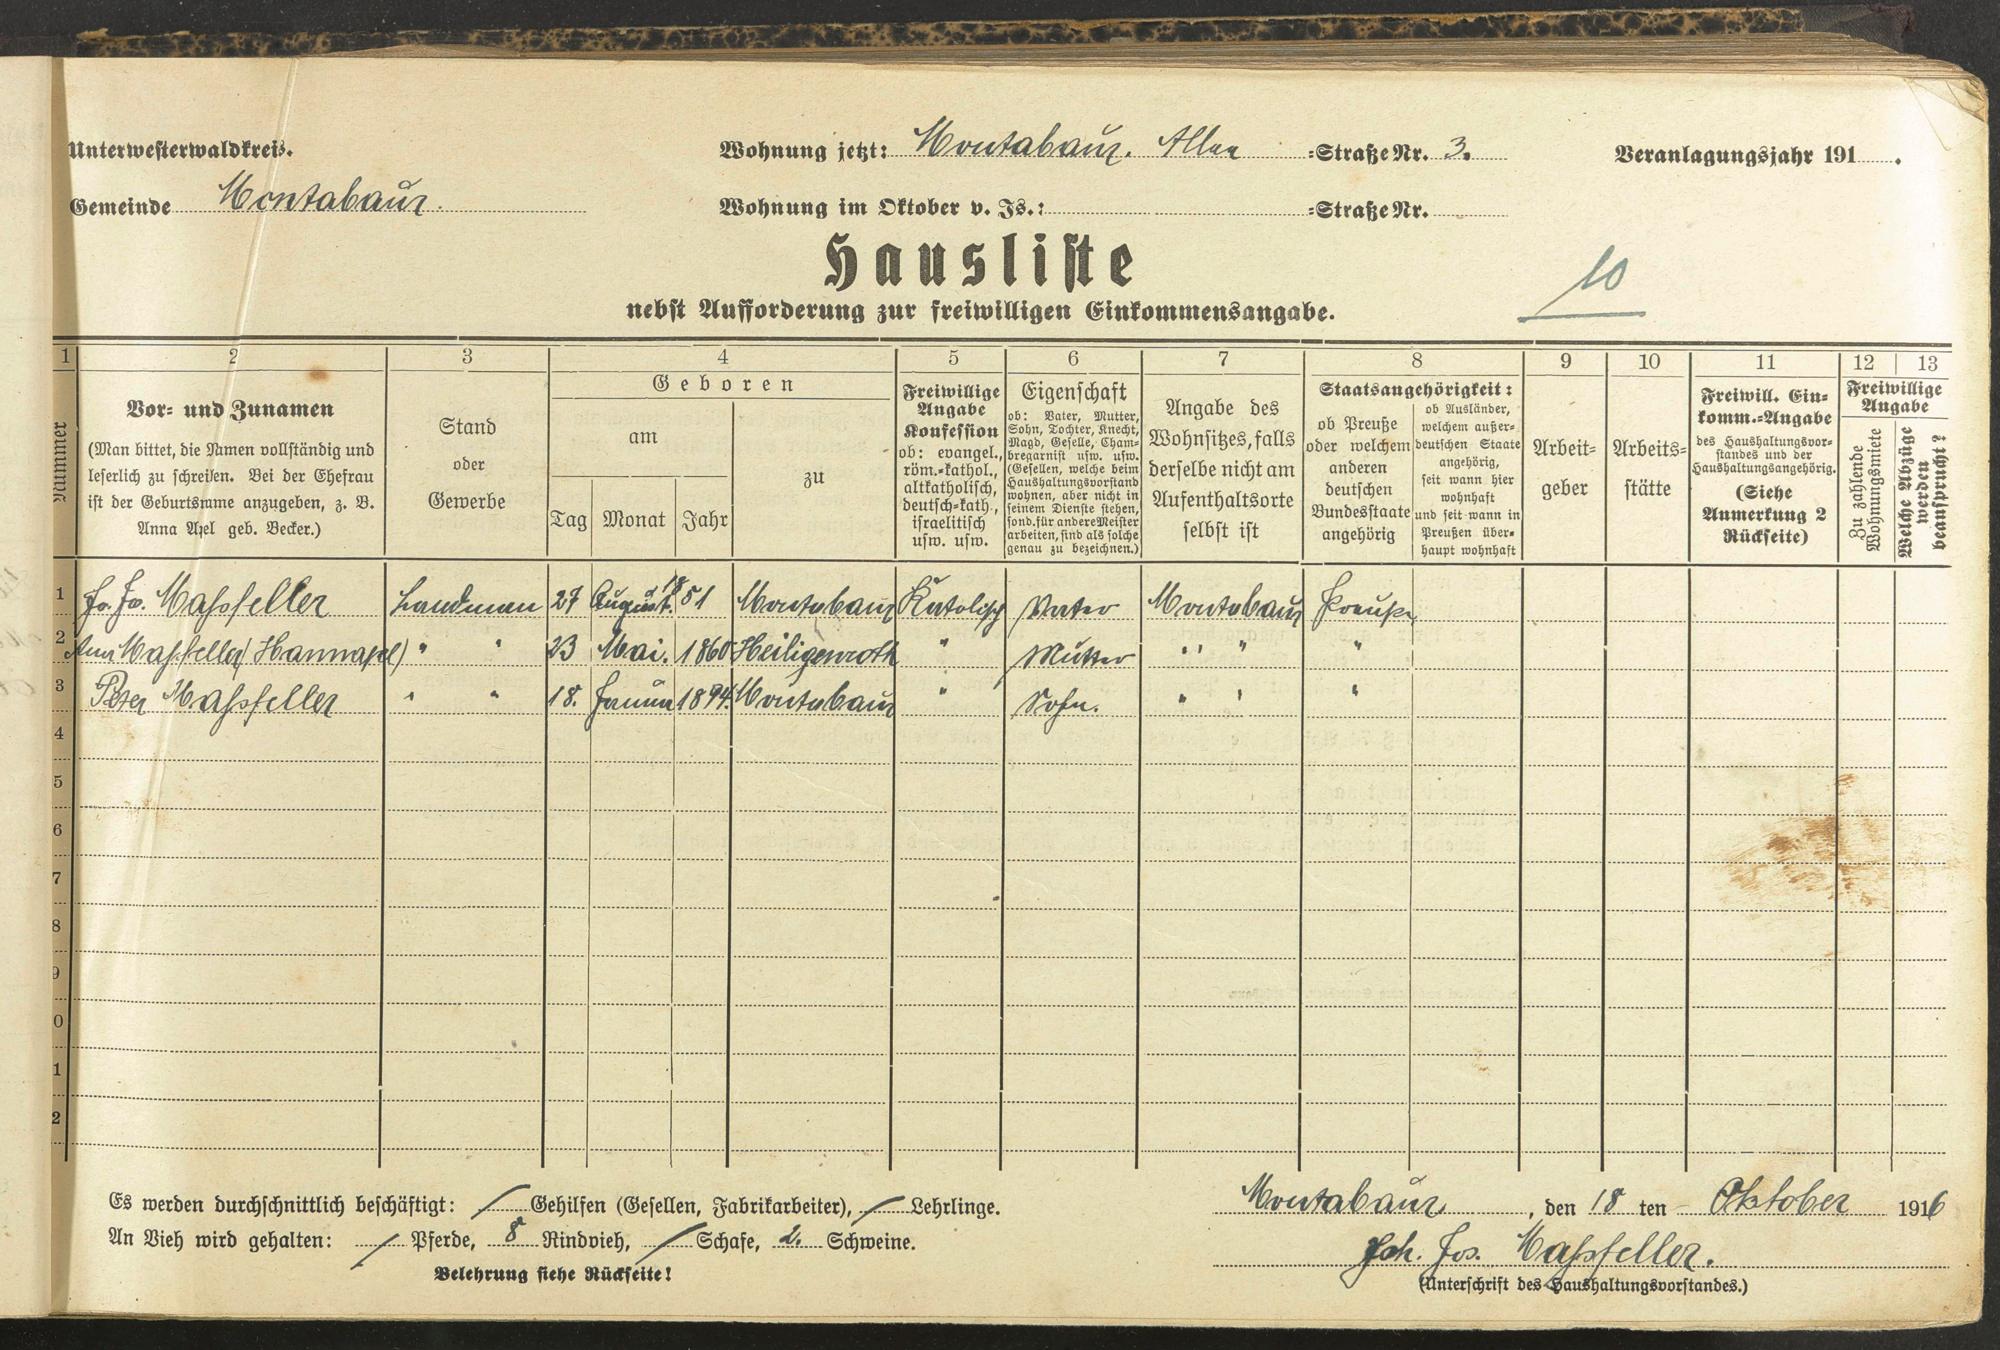 Unterwesterwaldkreis.
Wohnung jetzt: Montabaur. Allee =Straße Nr. 3.
Veranlagungsjahr 191 .
Gemeinde Montabaur.
Wohnung im Oktober v. Js.: =Straße Nr.
Hausliste
nebst Aufforderung zur freiwilligen Einkommensangabe.
10
1 2 3 4 5 6 7 8 9 10 11 12 13
Nummer
Vor= und Zunamen
(Man bittet, die Namen vollständig und
leserlich zu schreiben. Bei der Ehefrau
ist der Geburtsname anzugeben, z. B.
Anna Axel geb. Becker.)
Stand
oder
Gewerbe
Geboren
am
Tag Monat Jahr
zu
Freiwillige
Angabe
Konfession
ob: evangel.,
röm.=kathol.,
altkatholisch,
deutsch=kath.,
israelitisch
usw. usw.
Eigenschaft
ob: Vater, Mutter,
Sohn, Tochter, Knecht,
Magd, Geselle, Cham=
bregarnist usw. usw.
(Gesellen, welche beim
Haushaltungsvorstand
wohnen, aber nicht in
seinem Dienste stehen,
sond. für andere Meister
arbeiten, sind als solche
genau zu bezeichnen.)
Angabe des
Wohnsitzes, falls
derselbe nicht am
Aufenthaltsorte
selbst ist
Staatsangehörigkeit:
ob Preuße
oder welchem
anderen
deutschen
Bundesstaate
angehörig
ob Ausländer,
welchem außer=
deutschen Staate
angehörig,
seit wann hier
wohnhaft
und seit wann in
Preußen über=
haupt wohnhaft
Arbeit=
geber
Arbeits=
stätte
Freiwill. Ein=
komm.=Angabe
des Haushaltungsvor=
standes und der
Haushaltungsangehörig.
(Siehe
Anmerkung 2
Rückseite)
Freiwillige
Angabe
Zu zahlende
Wohnungsmiete
Welche Abzüge
werden
beansprucht?
1 Jo. Jo. Massfeller Landman 27 August. 1851 Montabaur Katolisch Vater Montabaur Preuße
2 Massfeller Hannapel) " " 23 Mai. 1860 Heiligenroth " Mutter " " "
3 Peter Massfeller " " 18. Januar 1894. Montabaur " Sohn. " " "
4
5
6
7
8
9
0
1
2
Es werden durchschnittlich beschäftigt: / Gehilfen (Gesellen, Fabrikarbeiter), / Lehrlinge.
An Vieh wird gehalten: / Pferde, 8 Rindvieh, / Schafe, 2. Schweine.
Belehrung siehe Rückseite!
Montabaur, , den 18 ten Oktober 1916
Joh. Jos. Massfeller.
(Unterschrift des Haushaltungsvorstandes.)